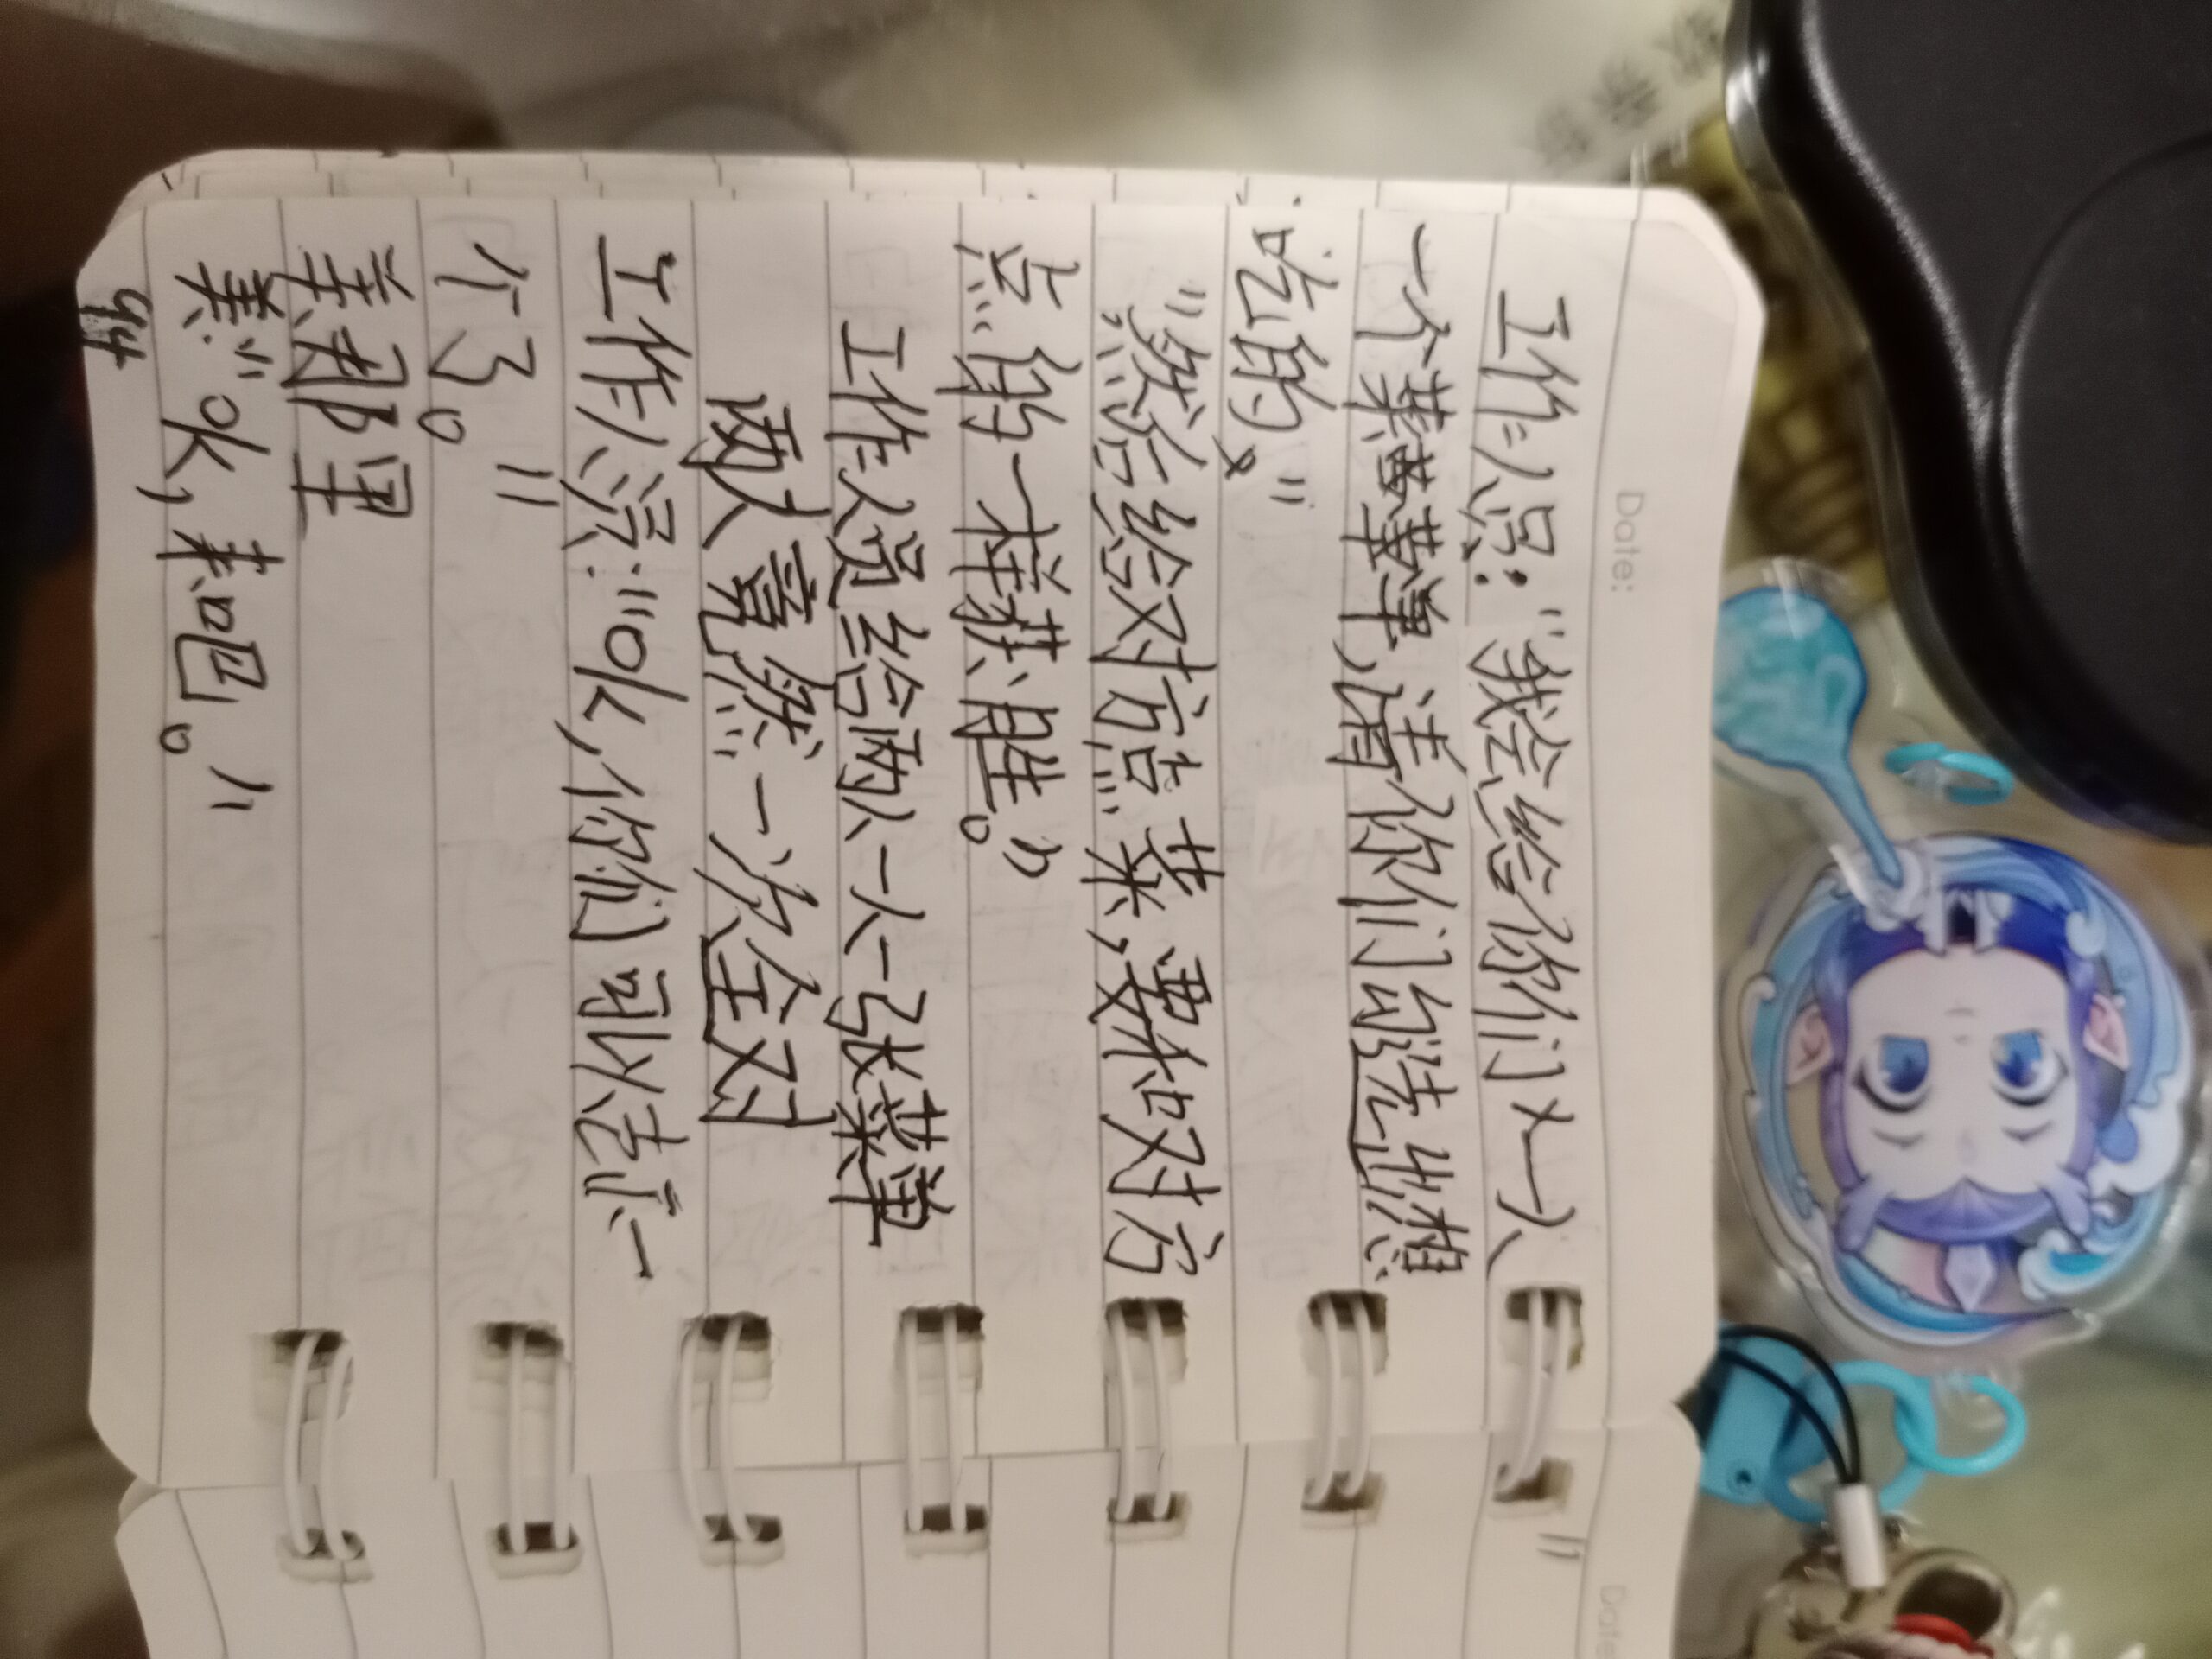 Date:
工作人员:"我会给你们人一人
一个菜单,请你们勾选出想
吃的"
"然后给对方点菜,要和对方
点的一样获胜。"
工作人员给两人一人一张菜单
两人竟然一次全对
工作人员:"ok,你们可以去下一
个了。"
姜那里
姜:"ok,来吧。"
94
Date: